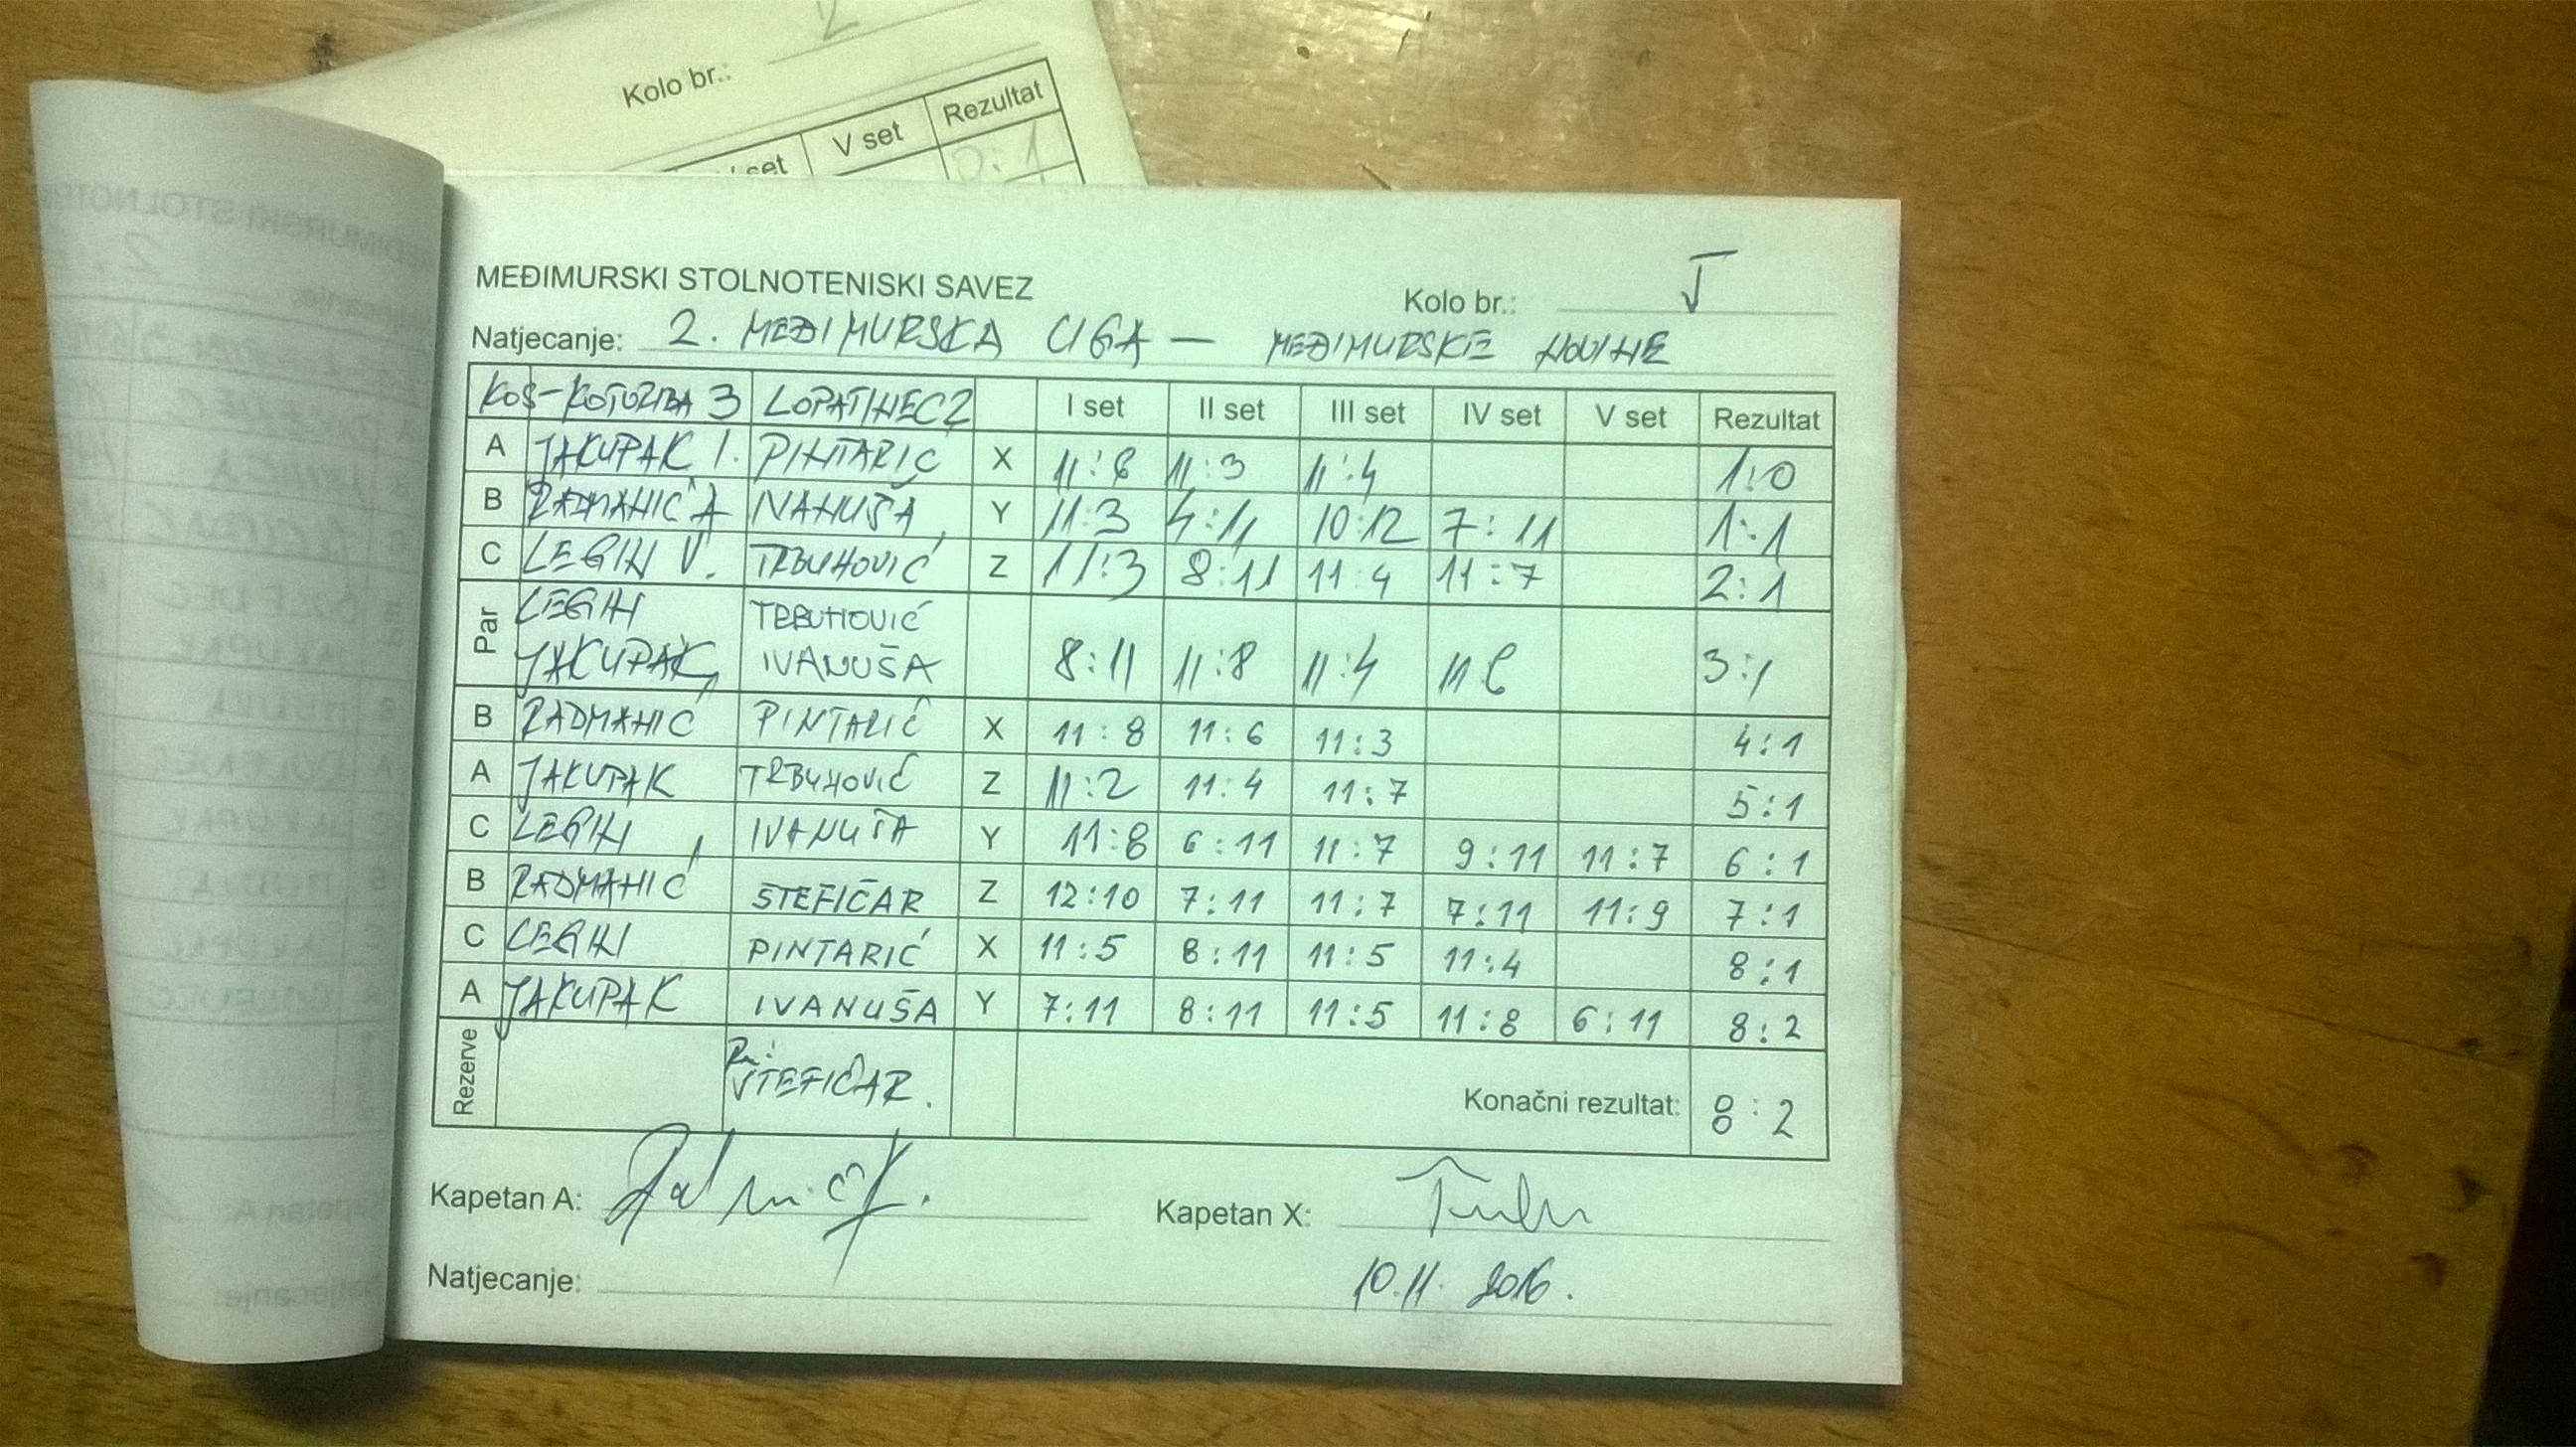 2
Kolo br.:
set V set Rezultat
0:1
MEĐIMURSKI STOLNOTENISKI SAVEZ
Kolo br.: V
Natjecanje: 2. MEĐIMURSKA LIGA — MEĐIMURSKE NOVINE
KOŠ-KOTORIBA 3 LOPATINEC 2 I set II set III set IV set V set Rezultat
A JAKUPAK I. PINTARIĆ X 11:8 11:3 11:4 1:0
B RADMANIĆ A IVANUŠA Y 11:3 4:11 10:12 7:11 1:1
C LEGIN V. TRBUHOVIĆ Z 11:3 8:11 11:4 11:7 2:1
Par LEGIN TRBUHOVIĆ
JAKUPAK IVANUŠA 8:11 11:8 11:4 11:6 3:1
B RADMANIĆ PINTARIĆ X 11:8 11:6 11:3 4:1
A JAKUPAK TRBUHOVIĆ Z 11:2 11:4 11:7 5:1
C LEGIN IVANUŠA Y 11:8 6:11 11:7 9:11 11:7 6:1
B RADMANIĆ ŠTEFIČAR Z 12:10 7:11 11:7 7:11 11:9 7:1
C LEGIN PINTARIĆ X 11:5 8:11 11:5 11:4 8:1
A JAKUPAK IVANUŠA Y 7:11 8:11 11:5 11:8 6:11 8:2
Rezerve ŠTEFIČAR. Konačni rezultat: 8:2
Kapetan A: Kapetan X:
Natjecanje: 10.11. 2016.